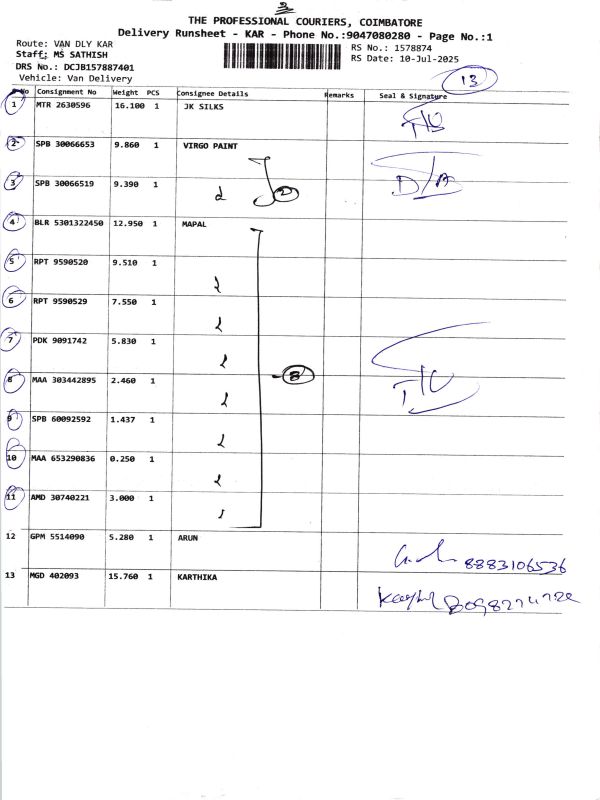 3
THE PROFESSIONAL COURIERS, COIMBATORE
Delivery Runsheet - KAR - Phone No.:9047080280 - Page No.:1
Route: VAN DLY KAR
RS No.: 1578874
Staff: MS SATHISH
RS Date: 10-Jul-2025
DRS No.: DCJB157887401
Vehicle: Van Delivery
13
No Consignment No Weight PCS Consignee Details Remarks Seal & Signature
1 MTR 2630596 16.100 1 JK SILKS
2 SPB 30066653 9.860 1 VIRGO PAINT
3 SPB 30066519 9.390 1
2
4 BLR 5301322450 12.950 1 MAPAL
5 RPT 9590520 9.510 1
6 RPT 9590529 7.550 1
7 PDK 9091742 5.830 1
8 MAA 303442895 2.460 1
8
9 SPB 60092592 1.437 1
10 MAA 653290836 0.250 1
11 AMD 30740221 3.000 1
12 GPM 5514090 5.280 1 ARUN
8883106536
13 MGD 402093 15.760 1 KARTHIKA